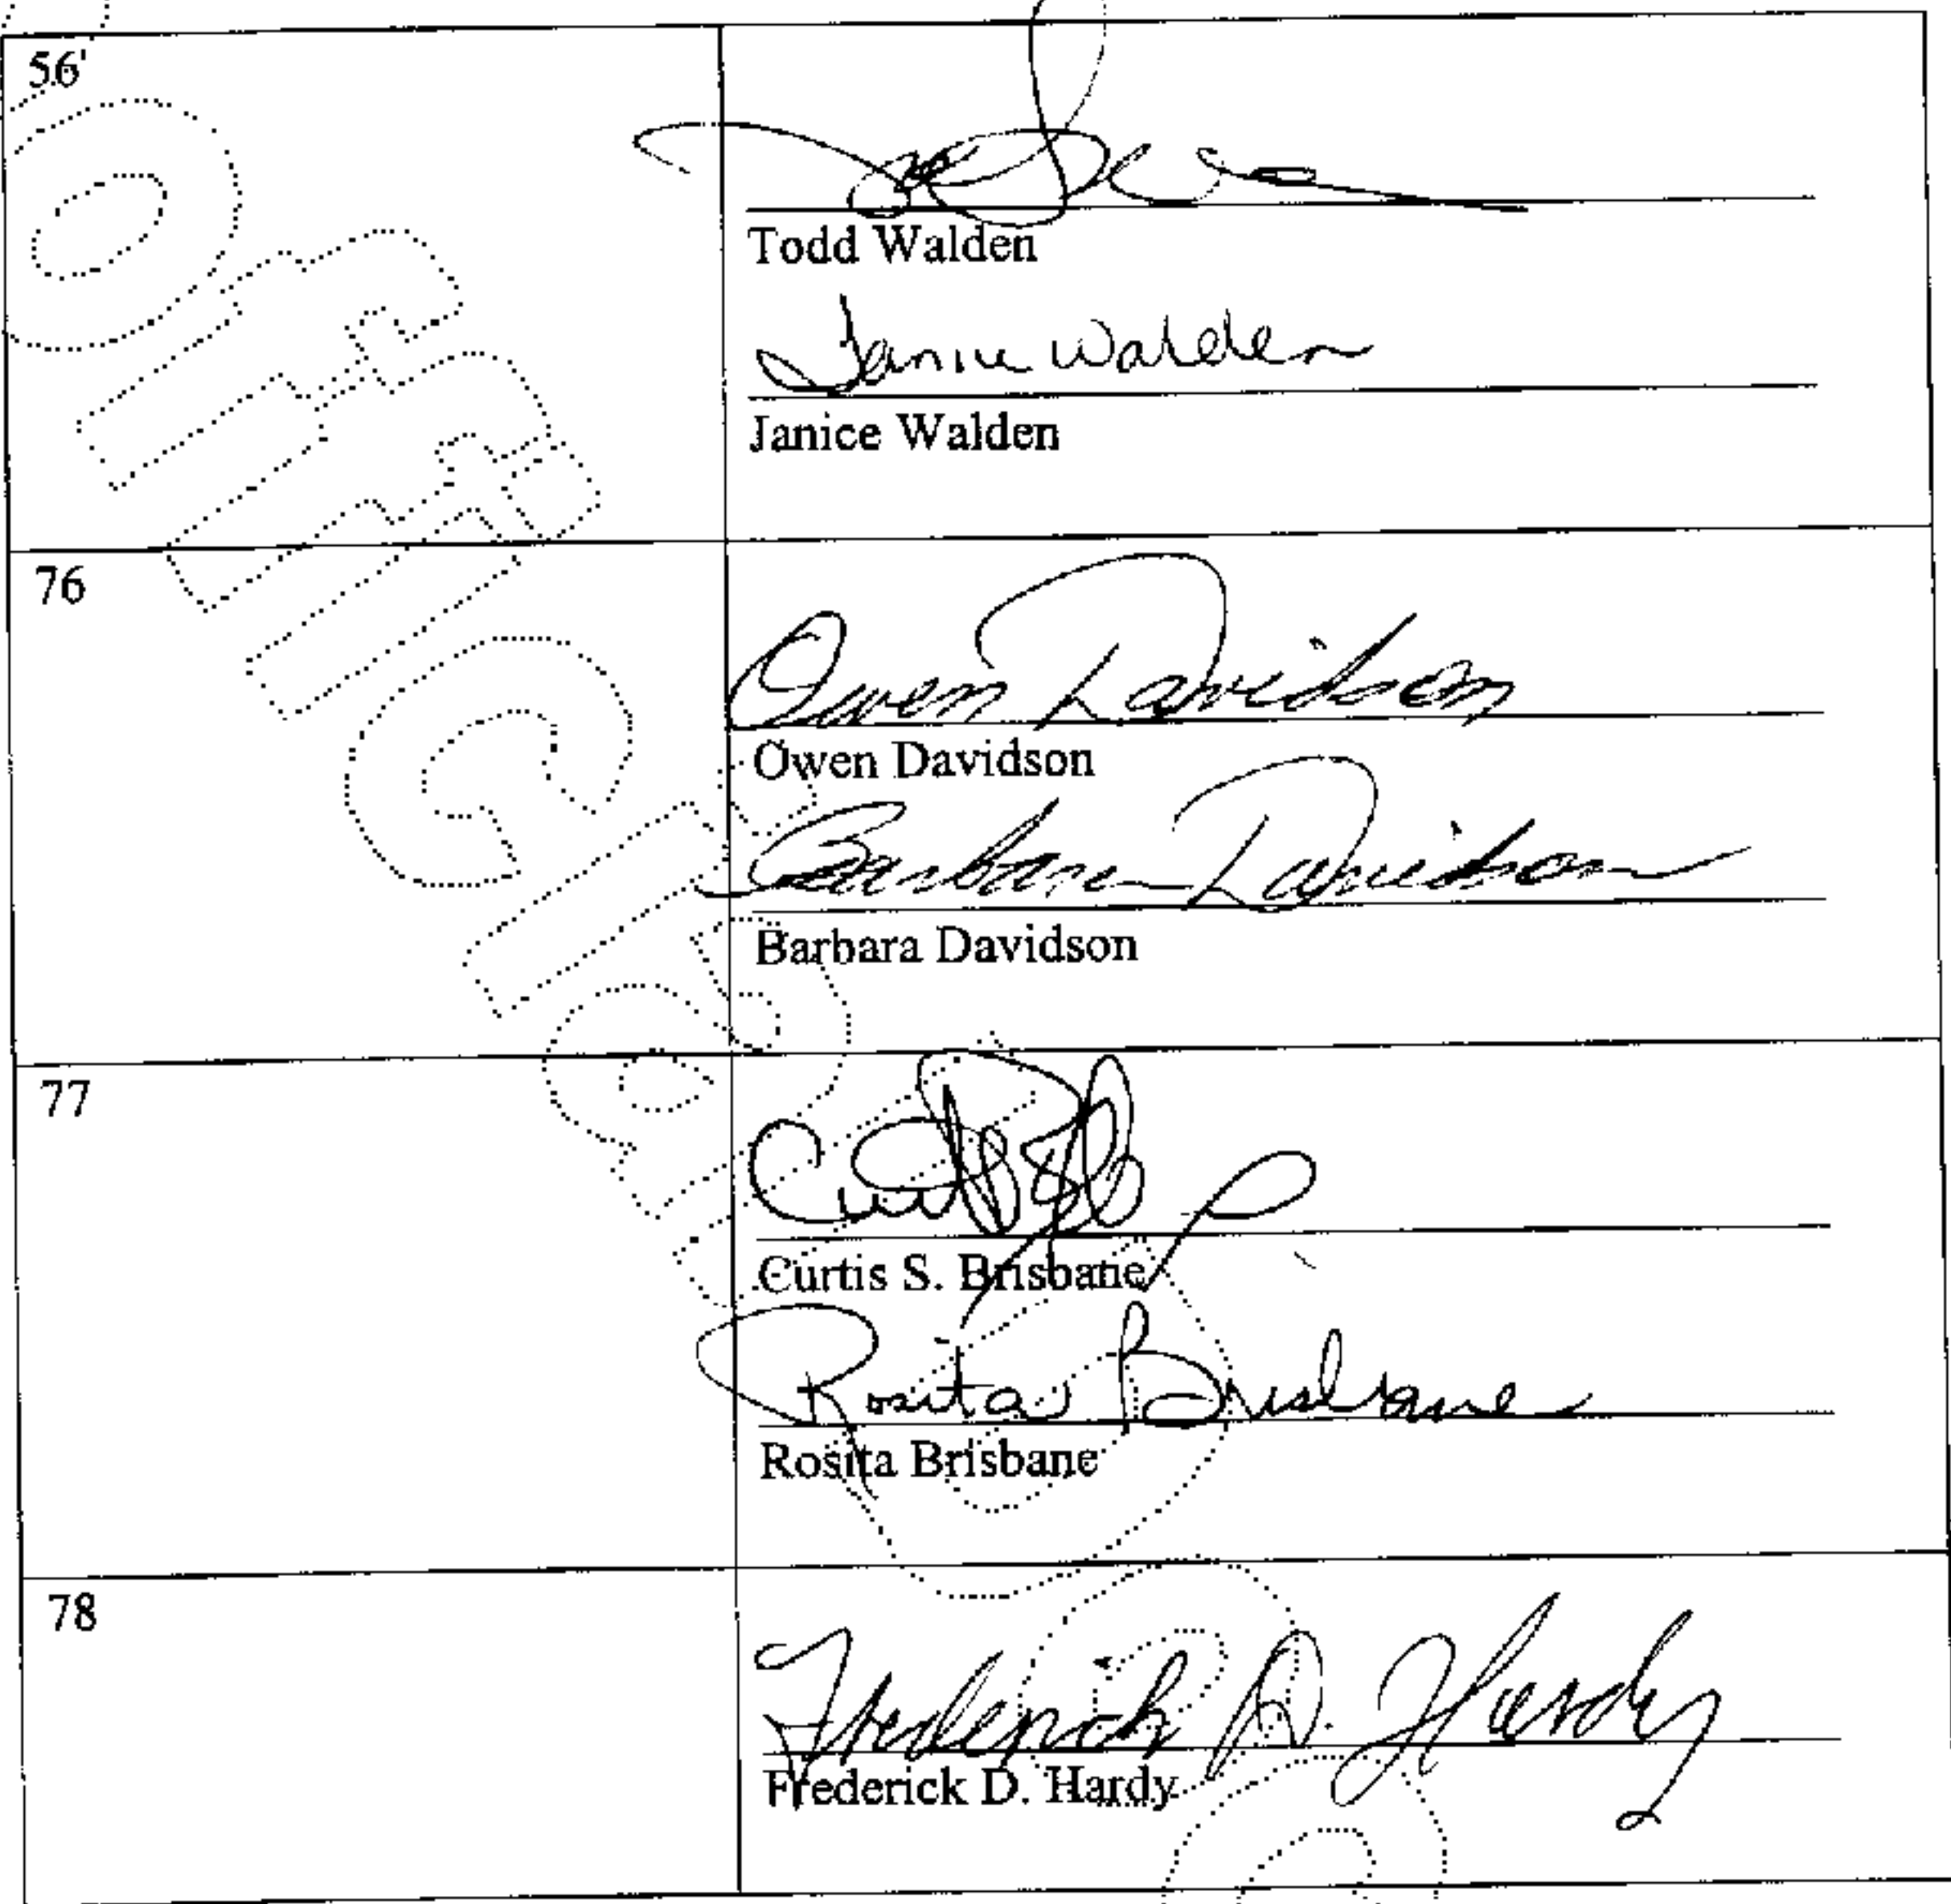 56'
Todd Walden
Janice Walden
Janice Walden
76
Owen Davidson
Owen Davidson
Barbara Davidson
Barbara Davidson
77
Curtis S. Brisbane
Rosita Brisbane
Rosita Brisbane
78
Frederick D. Hardy
Frederick D. Hardy